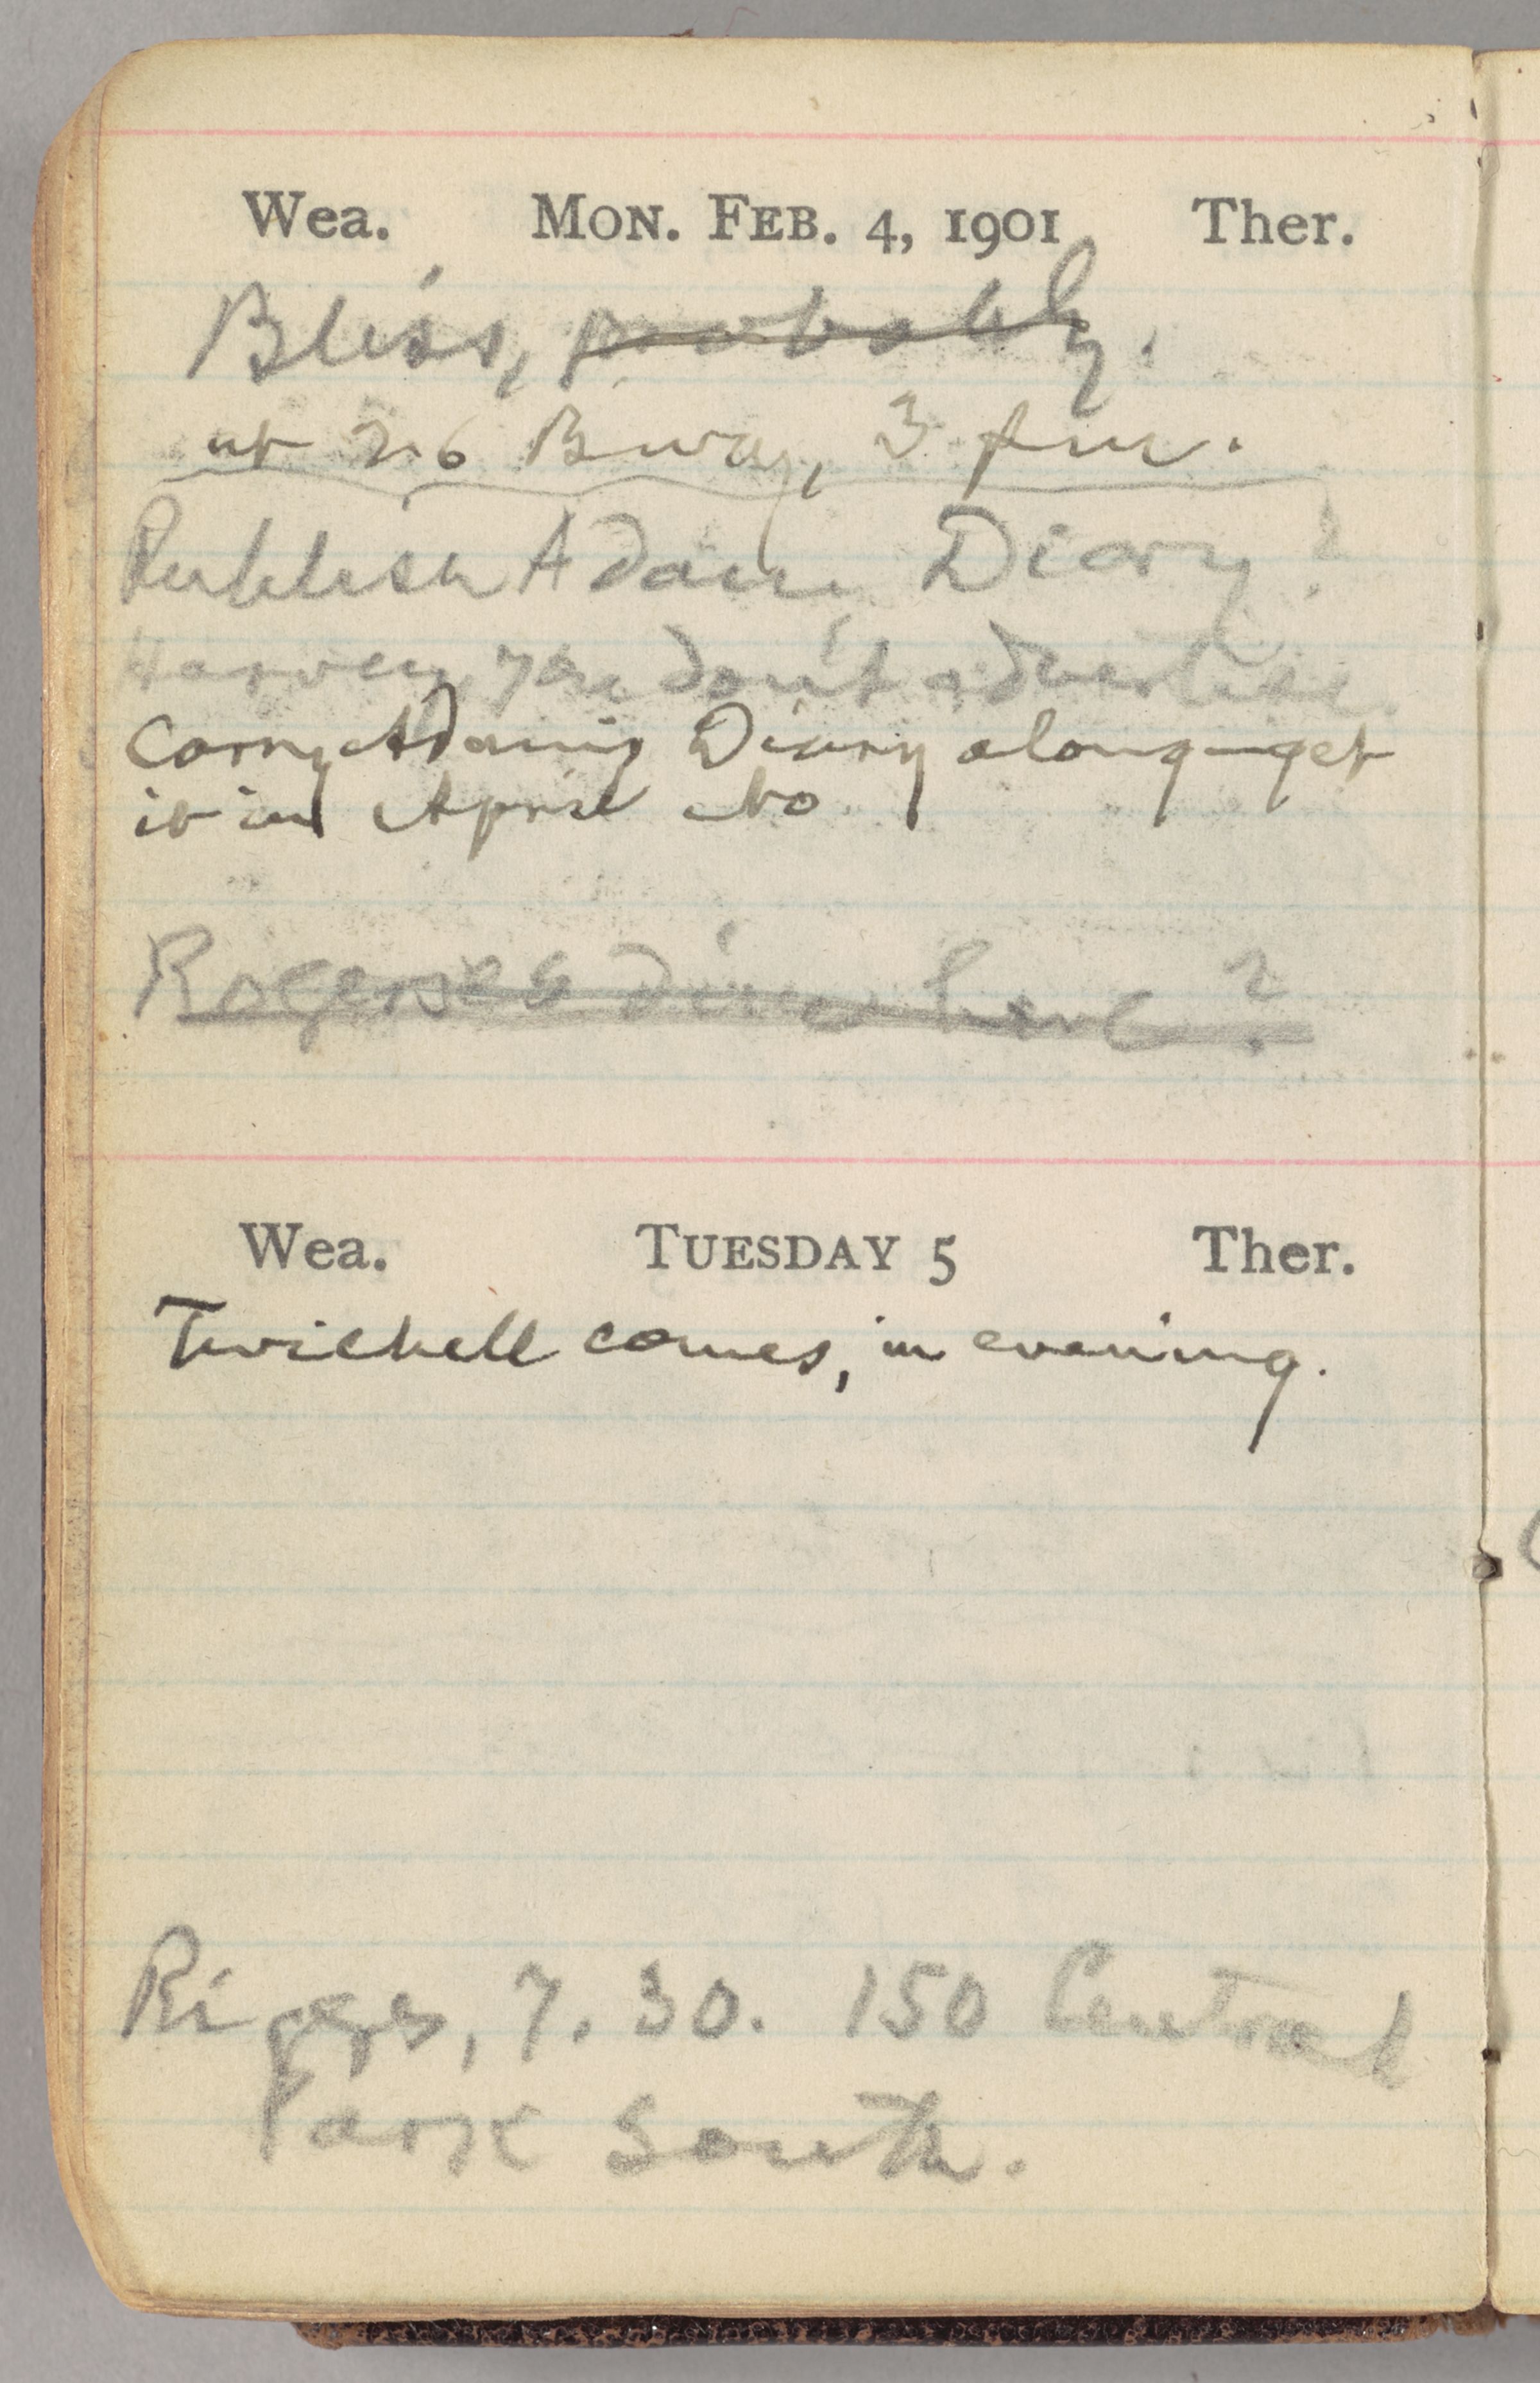 Wea. MON. FEB. 4, 1901 Ther.
Bliss, probably.
at 26 Bway, 3 pm.
Publish Adam Diary?
Harvey, you don't advertise.
Carry Adam's Diary along—get
it in April No.
Rogerses dine here?
Wea. TUESDAY 5 Ther.
Twichell comes, in evening.
Riggs, 7.30. 150 Central
Park South.